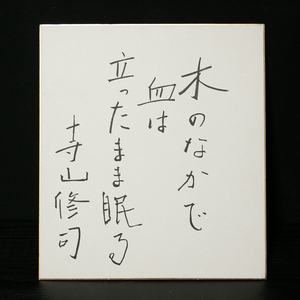 木のなかで
血は
立ったまま眠る
寺山修司